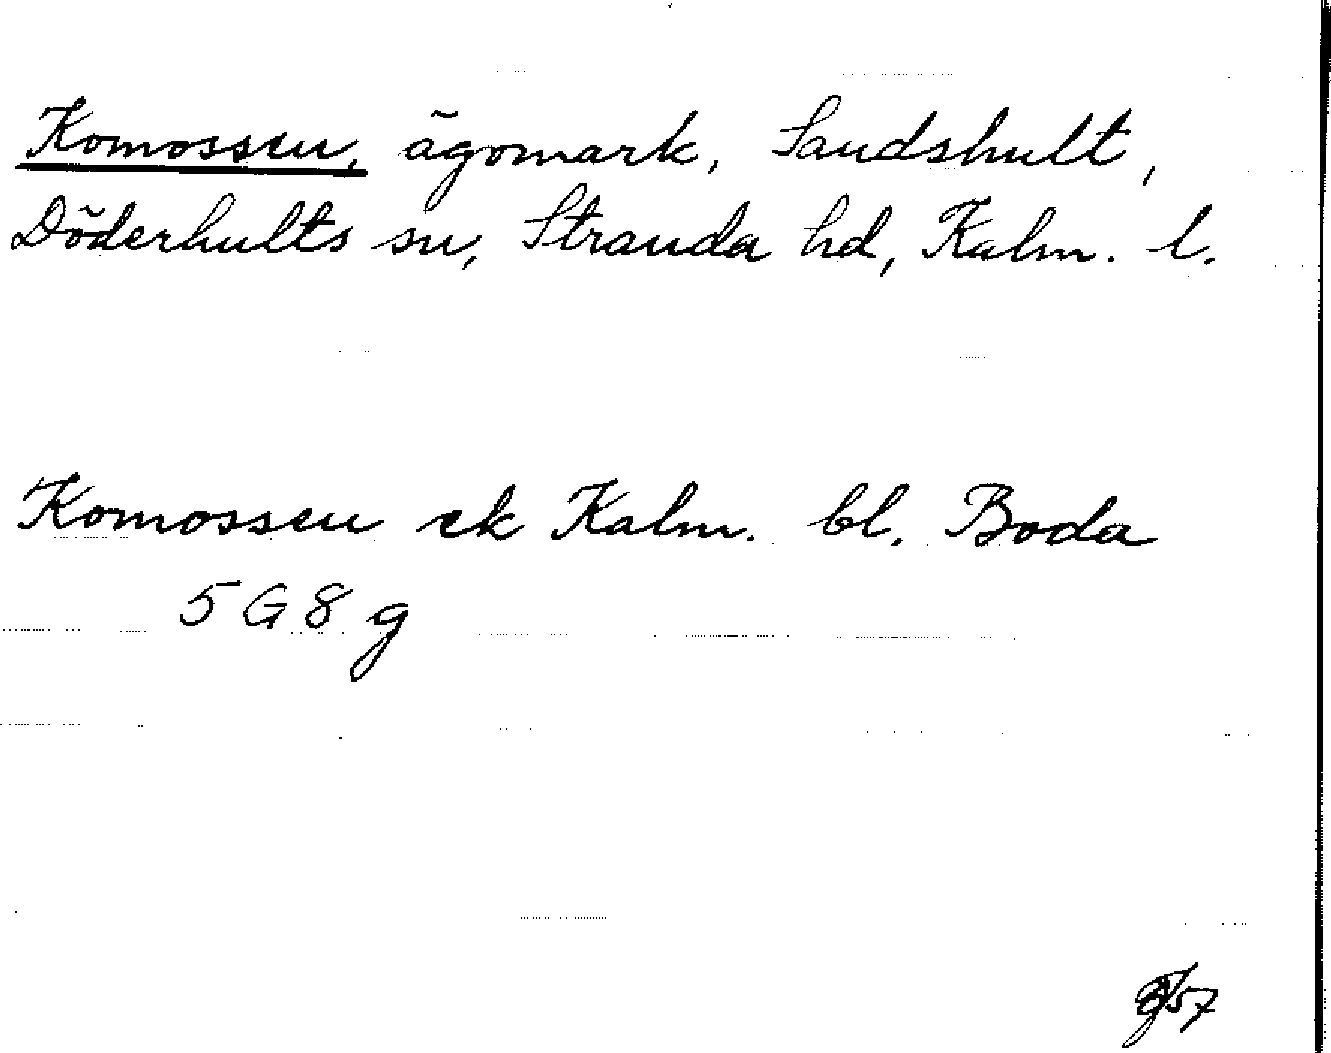 Komossen, ägomark, Sandshult,
Döderhults sn, Stranda hd, Kalm. l.
Komossen ek Kalm. bl. Boda
5 G 8 g